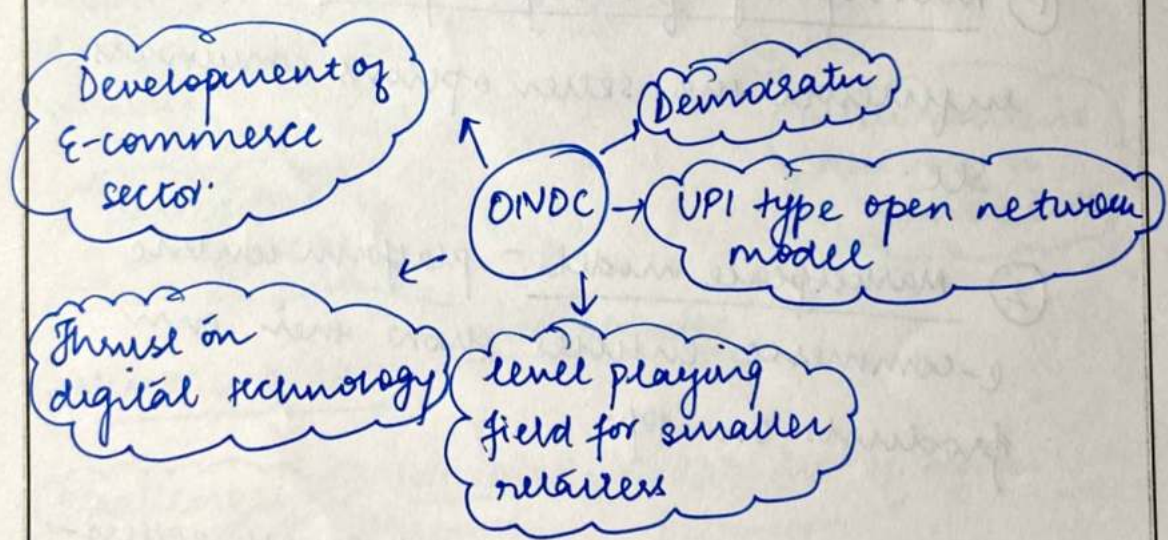 Development of
E-commerce
sector.
Democratic
ONDC
UPI type open network
model
Thrust on
digital technology
level playing
field for smaller
retailers